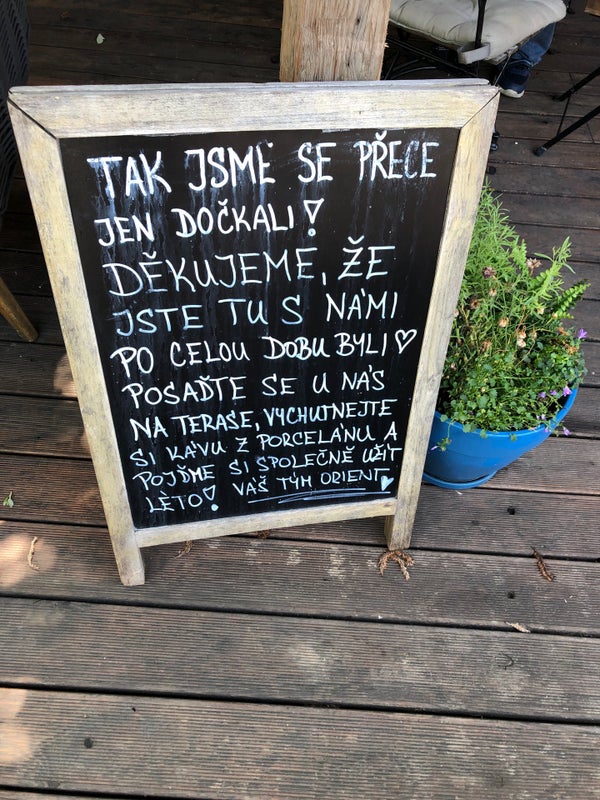 TAK JSME SE PŘECE
JEN DOČKALI!
DĚKUJEME, ŽE
JSTE TU S NÁMI
PO CELOU DOBU BYLI♡
POSAĎTE SE U NÁS
NA TERASE, VYCHUTNEJTE
SI KÁVU Z PORCELÁNU A
POJĎME SI SPOLEČNĚ UŽÍT
LÉTO! VÁŠ TÝM ORIENT♥